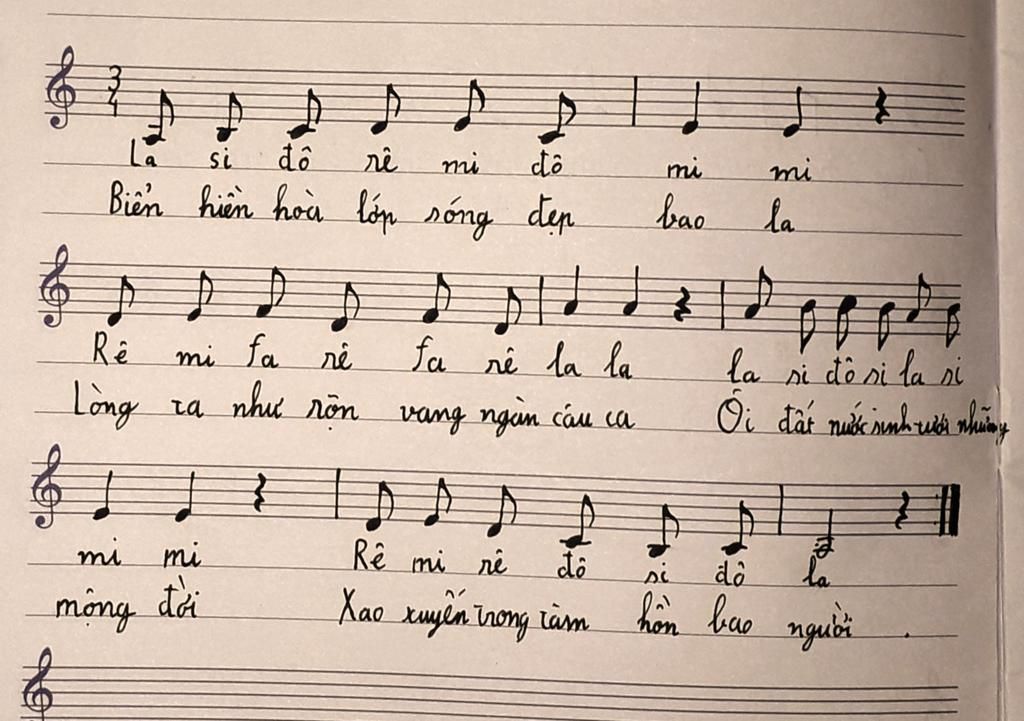 3
4
La si đô rê mi đô mi mi
Biển hiền hoà lớp sóng đẹp bao la
Rê mi fa rê fa rê la la la si đô si la si
Lòng ta như rộn vang ngàn câu ca Ôi đất nước sinh tươi những
mi mi Rê mi rê đô si đô la
mộng đời Xao xuyến trong tâm hồn bao người .